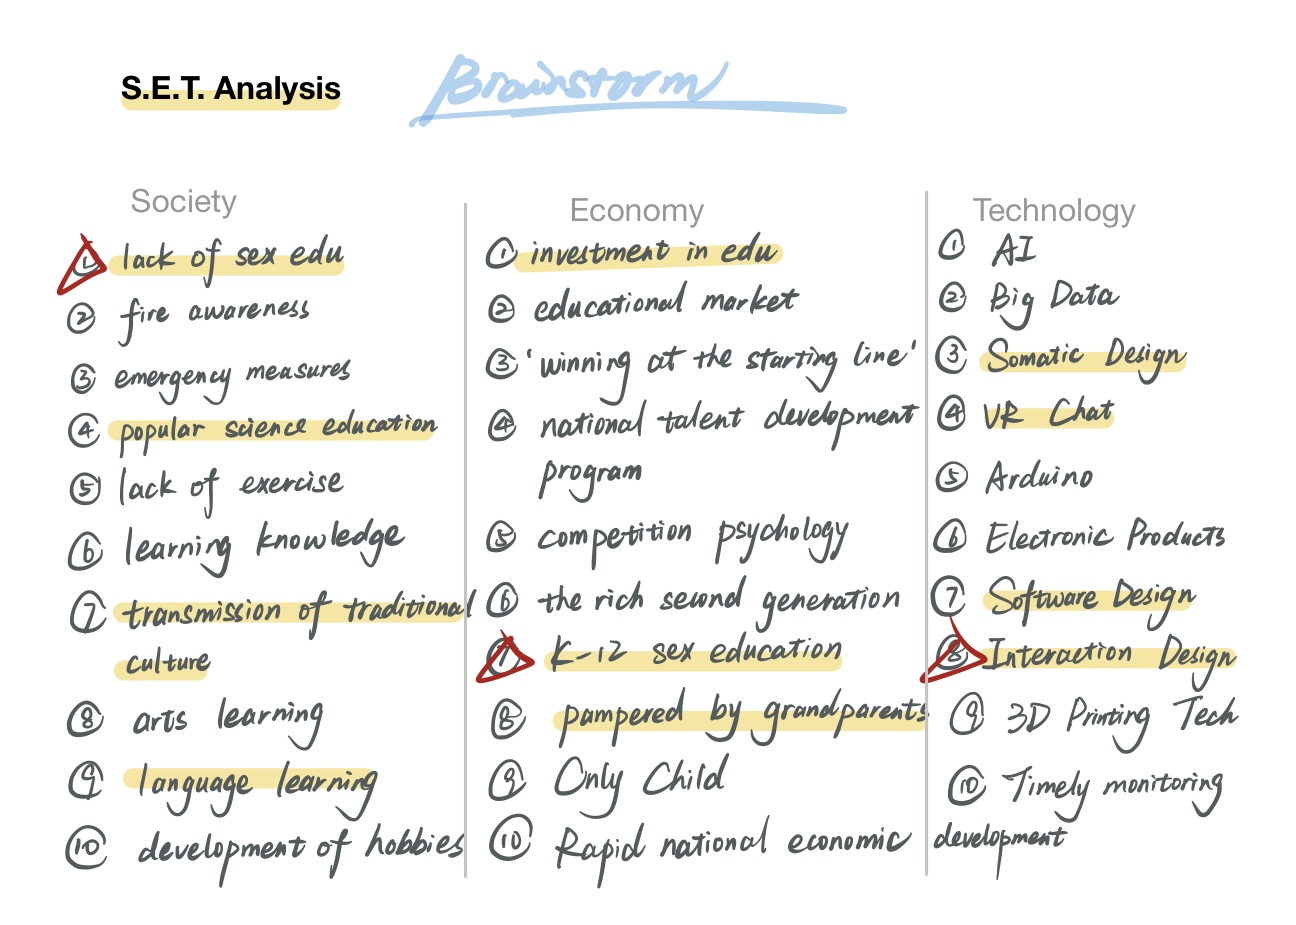 S.E.T. Analysis
Brainstorm
Society
① lack of sex edu
② fire awareness
③ emergency measures
④ popular science education
⑤ lack of exercise
⑥ learning knowledge
⑦ transmission of traditional
culture
⑧ arts learning
⑨ language learning
⑩ development of hobbies
Economy
① investment in edu
② educational market
③ 'winning at the starting line'
④ national talent development
program
⑤ competition psychology
⑥ the rich second generation
⑦ K-12 sex education
⑧ pampered by grandparents
⑨ Only Child
⑩ Rapid national economic development
Technology
① AI
② Big Data
③ Somatic Design
④ VR Chat
⑤ Arduino
⑥ Electronic Products
⑦ Software Design
⑧ Interaction Design
⑨ 3D Printing Tech
⑩ Timely monitoring